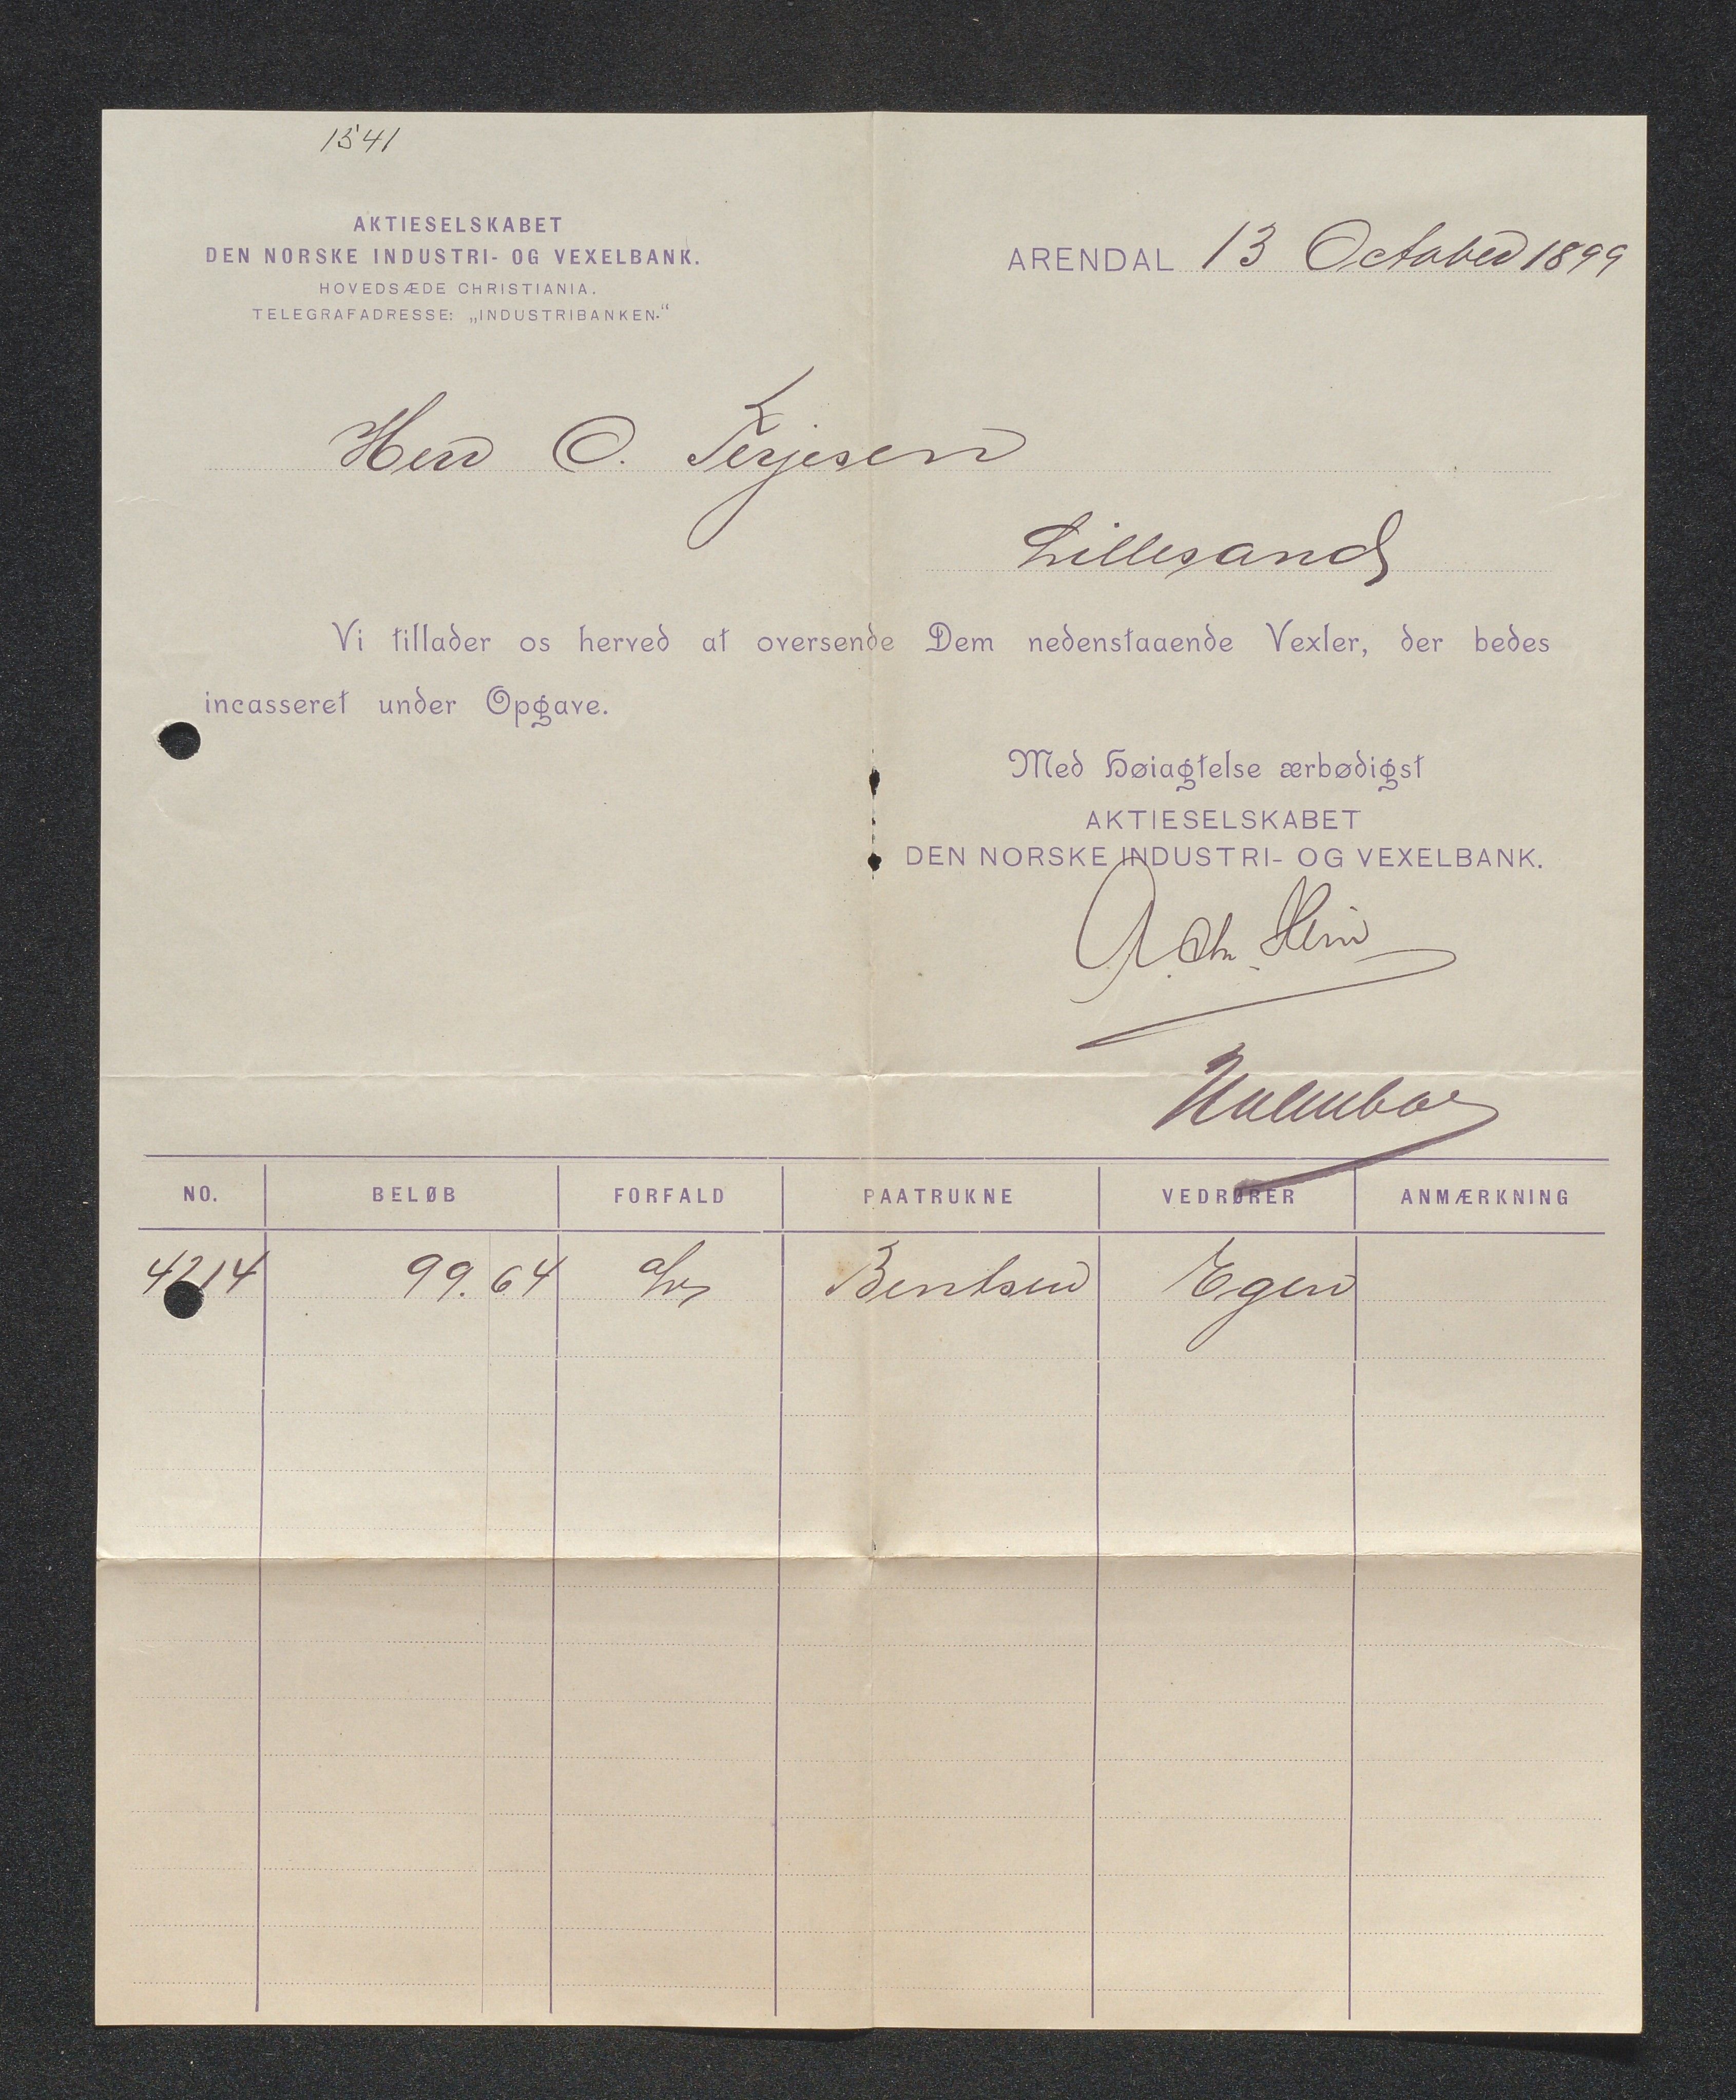 1541
AKTIESELSKABET
DEN NORSKE INDUSTRI- OG VEXELBANK.
HOVEDSÆDE CHRISTIANIA.
TELEGRAFADRESSE: „INDUSTRIBANKEN.“
ARENDAL 13 October 1899
Herr O. Terjesen
Lillesand
Vi tillader os herved at oversende Dem nedenstaaende Vexler, der bedes
incasseret under Opgave.
Med Høiagtelse ærbødigst
AKTIESELSKABET
DEN NORSKE INDUSTRI- OG VEXELBANK.
NO. BELØB FORFALD PAATRUKNE VEDRØRER ANMÆRKNING
4214 99.64 Bentsen Egen